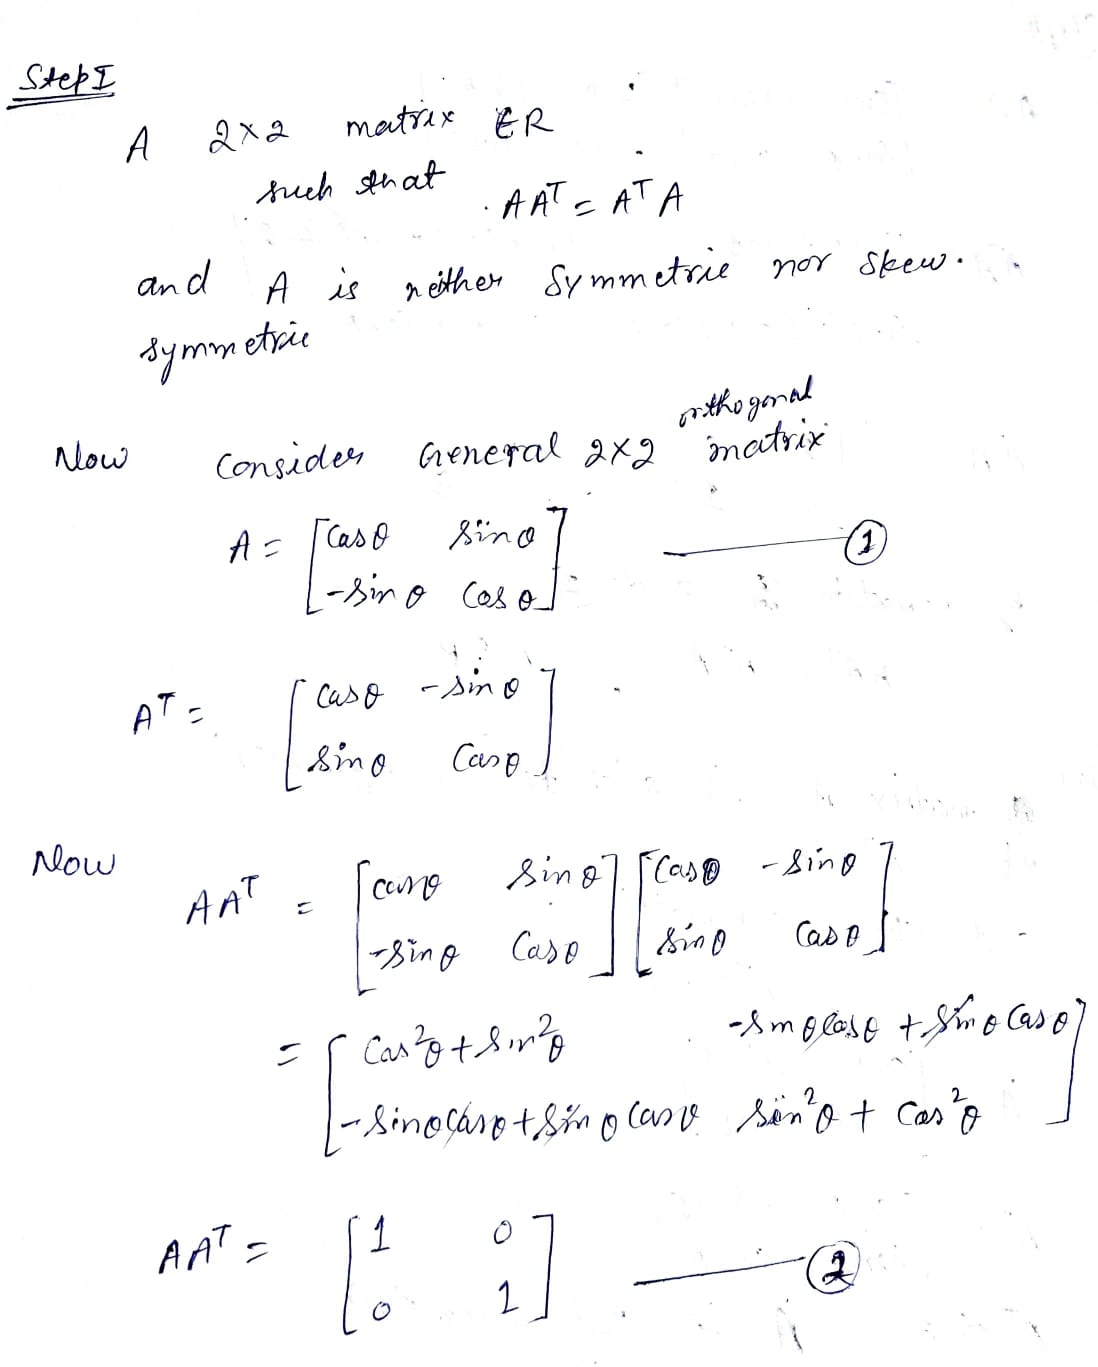 Step I
A 2×2 matrix ∈ R
such that
AAᵀ = AᵀA
and A is neither symmetric nor skew.
symmetric
orthogonal
Now Consider General 2×2 matrix
A = [cosθ sinθ ——— ①
-sinθ cosθ]
Aᵀ = [cosθ -sinθ
sinθ cosθ]
Now
AAᵀ = [cosθ sinθ] [cosθ -sinθ
-sinθ cosθ] [sinθ cosθ]
= [cos²θ + sin²θ -sinθcosθ + sinθcosθ
-sinθcosθ + sinθcosθ sin²θ + cos²θ]
AAᵀ = [1 0 ——— ②
0 1]